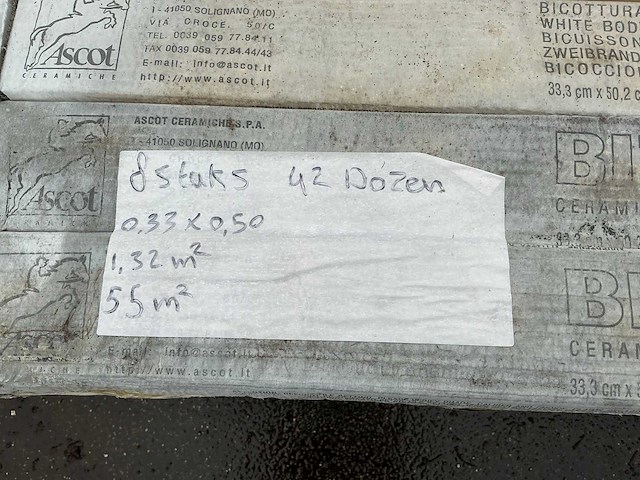 I - 41050 SOLIGNANO (MO)
VIA CROCE, 50/C
TEL. 0039 059 77.84.11
FAX 0039 059 77.84.44/43
E-mail: info@ascot.it
http://www.ascot.it
Ascot
CERAMICHE
BICOTTURA
WHITE BOD
BICUISSON
ZWEIBRAND
BICOCCIO
33,3 cm x 50,2 c
ASCOT CERAMICHE S.P.A.
I - 41050 SOLIGNANO (MO)
Ascot
BI
CERAMI
8 stuks 42 Dozen
0,33 x 0,50
1,32 m²
55 m²
BI
CERAM
E-mail: info@ascot.it
http://www.ascot.it
33,3 cm x 5